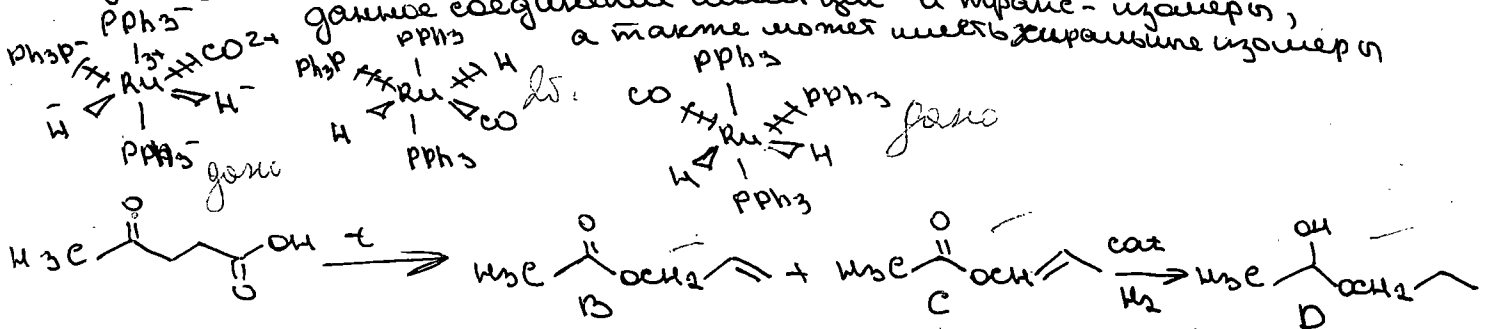 данное соединение имеет цис- и транс-изомеры,
а также может иметь хиральные изомеры
PPh3⁻ Ph3P⁻ 3+ Ru CO2+ H⁻ H⁻ PPh3⁻ дано
PPh3 Ph3P Ru H H CO PPh3 2б.
PPh3 CO Ru PPh3 H H PPh3 дано
H3C O OH O t H3C O OCH2 + H3C O OCH cat H2 H3C OH OCH2
B C D